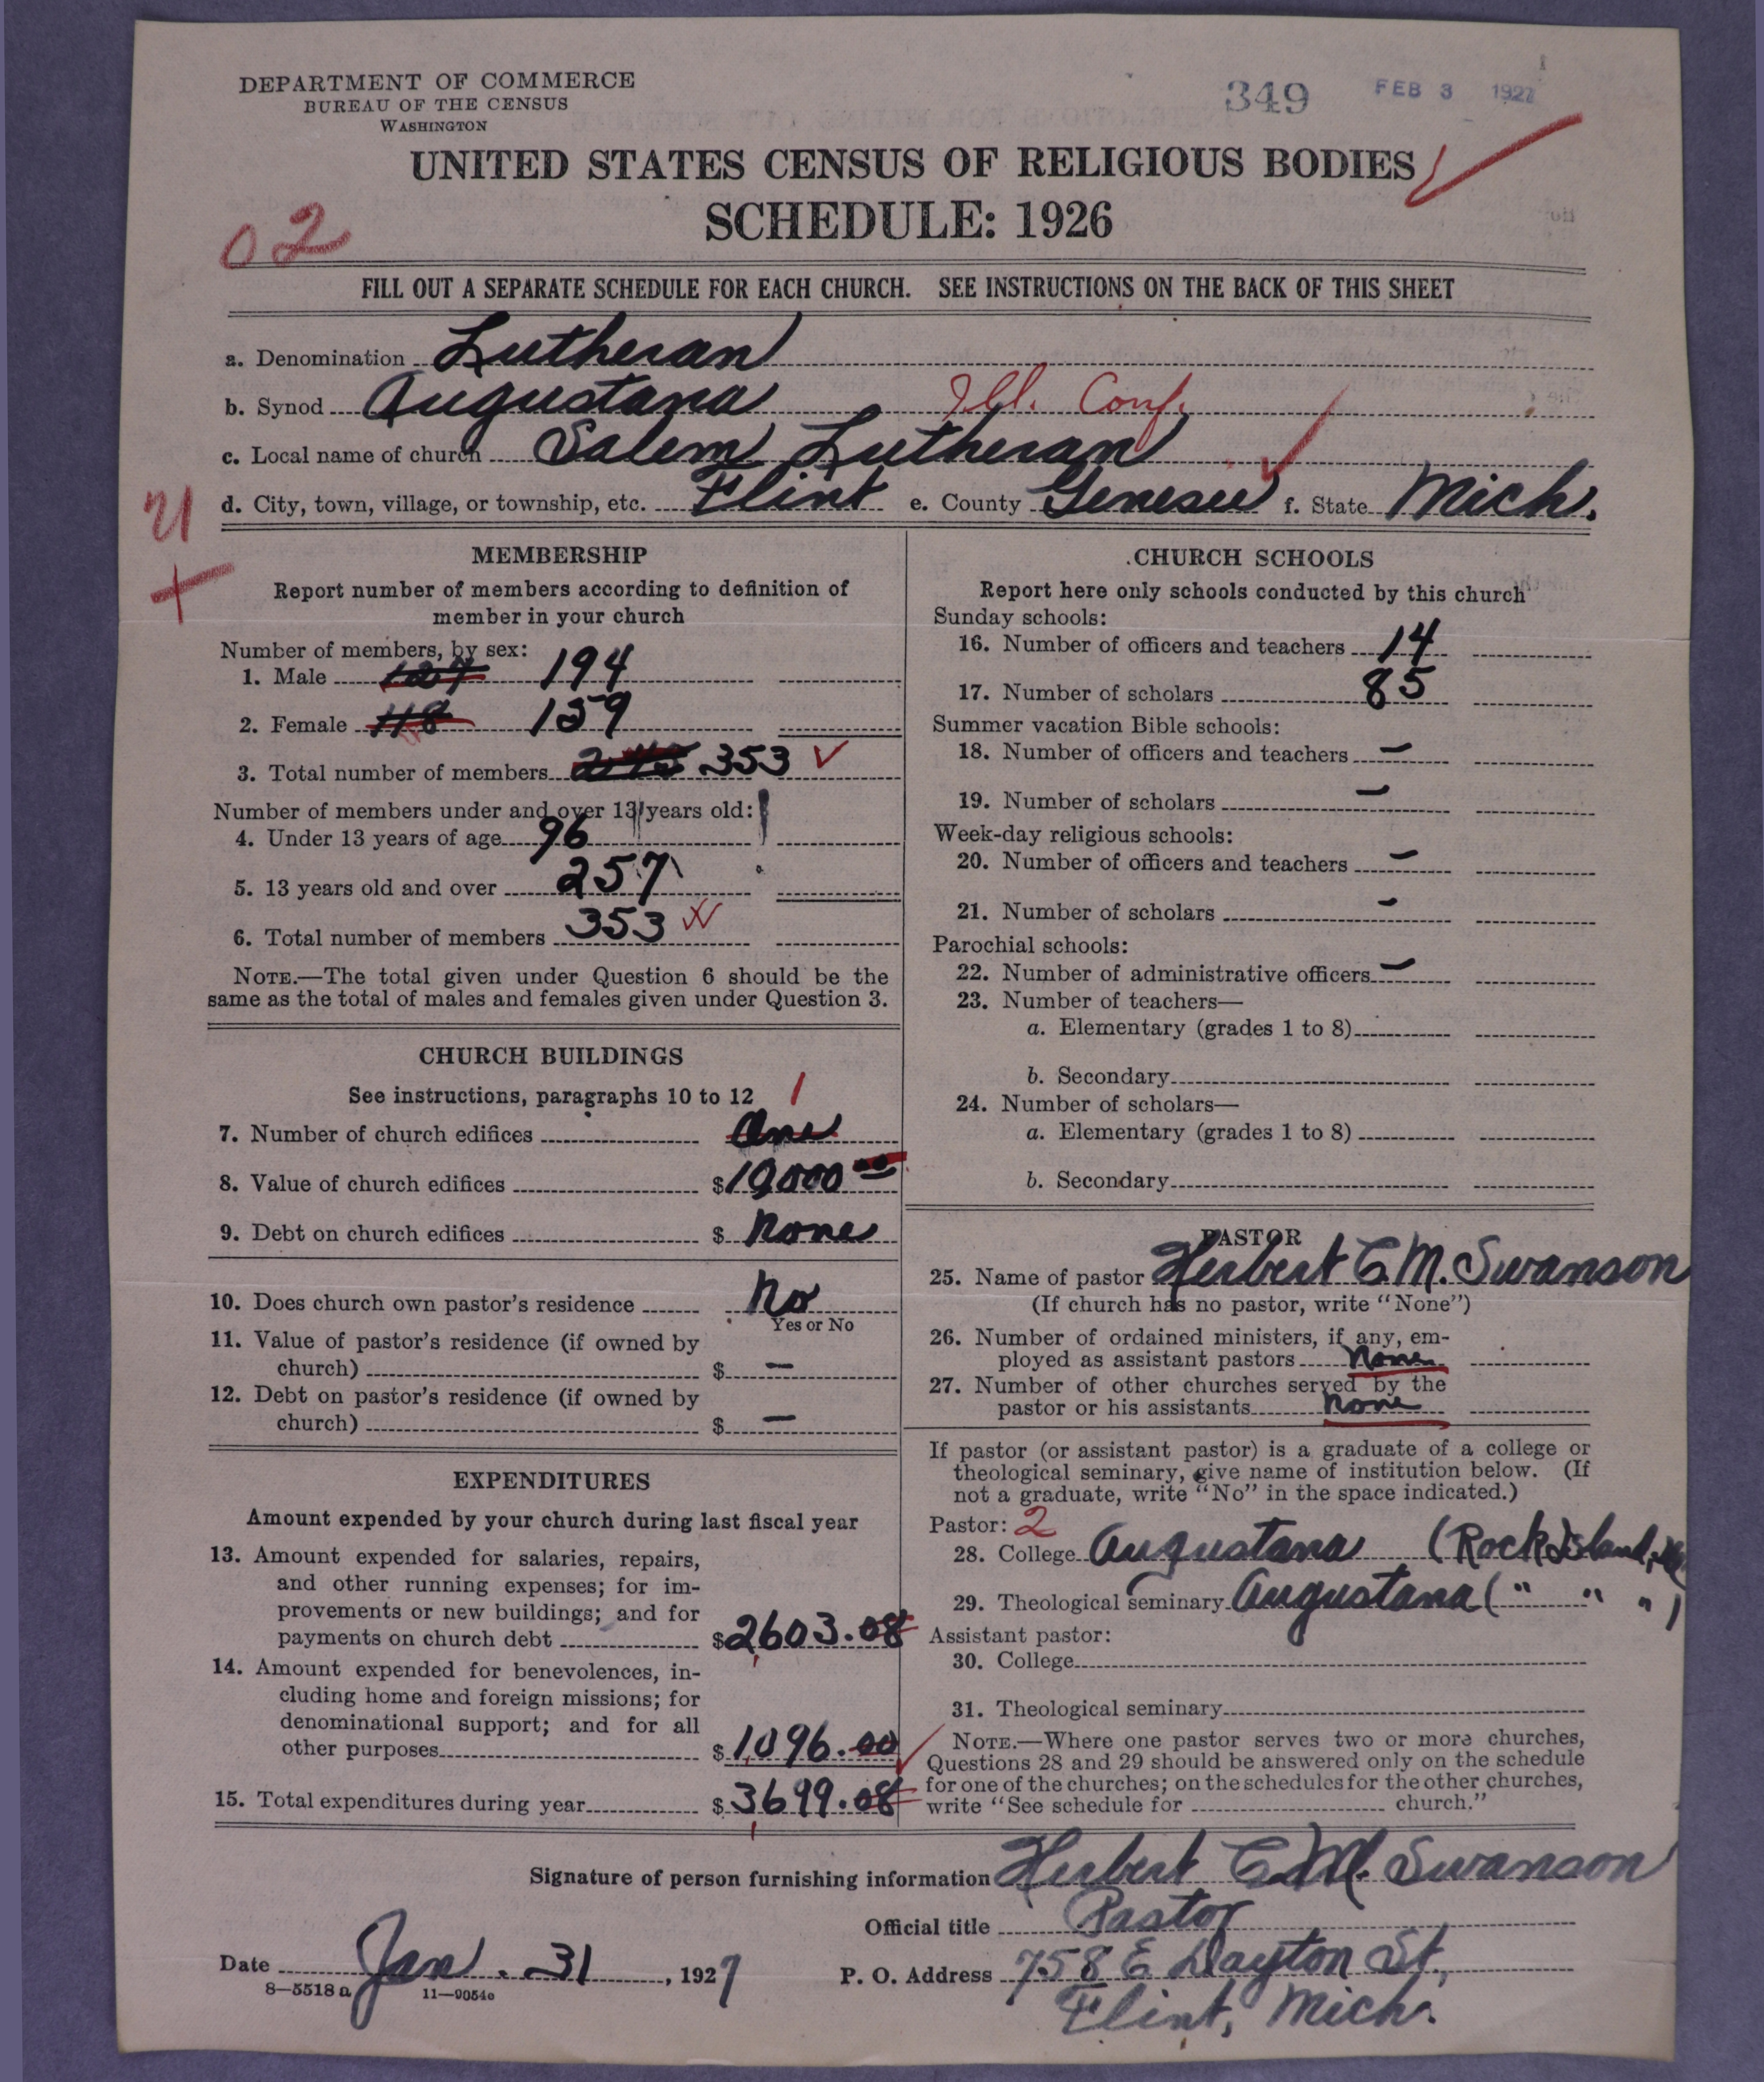 DEPARTMENT OF COMMERCE
BUREAU OF THE CENSUS
WASHINGTON
349 FEB 3 1927
UNITED STATES CENSUS OF RELIGIOUS BODIES
SCHEDULE: 1926
02
FILL OUT A SEPARATE SCHEDULE FOR EACH CHURCH. SEE INSTRUCTIONS ON THE BACK OF THIS SHEET
a. Denomination Lutheran
b. Synod Augustana Ill. Conf.
c. Local name of church Salem Lutheran
d. City, town, village, or township, etc. Flint e. County Genesee f. State Mich.
21
MEMBERSHIP
Report number of members according to definition of
member in your church
Number of members, by sex:
1. Male 194
2. Female 118 159
3. Total number of members 353
Number of members under and over 13 years old:
4. Under 13 years of age 96
5. 13 years old and over 257
6. Total number of members 353
NOTE.—The total given under Question 6 should be the
same as the total of males and females given under Question 3.
CHURCH BUILDINGS
See instructions, paragraphs 10 to 12 1
7. Number of church edifices One
8. Value of church edifices $10000 00
9. Debt on church edifices $ None
10. Does church own pastor's residence No
Yes or No
11. Value of pastor's residence (if owned by
church) $ —
12. Debt on pastor's residence (if owned by
church) $ —
EXPENDITURES
Amount expended by your church during last fiscal year
13. Amount expended for salaries, repairs,
and other running expenses; for im-
provements or new buildings; and for
payments on church debt $2603.08
14. Amount expended for benevolences, in-
cluding home and foreign missions; for
denominational support; and for all
other purposes $1,096.00
15. Total expenditures during year $3699.08
CHURCH SCHOOLS
Report here only schools conducted by this church
Sunday schools:
16. Number of officers and teachers 14
17. Number of scholars 85
Summer vacation Bible schools:
18. Number of officers and teachers —
19. Number of scholars —
Week-day religious schools:
20. Number of officers and teachers —
21. Number of scholars —
Parochial schools:
22. Number of administrative officers —
23. Number of teachers—
a. Elementary (grades 1 to 8)
b. Secondary
24. Number of scholars—
a. Elementary (grades 1 to 8)
b. Secondary
PASTOR
25. Name of pastor Herbert C. M. Swanson
(If church has no pastor, write "None")
26. Number of ordained ministers, if any, em-
ployed as assistant pastors None
27. Number of other churches served by the
pastor or his assistants None
If pastor (or assistant pastor) is a graduate of a college or
theological seminary, give name of institution below. (If
not a graduate, write "No" in the space indicated.)
Pastor: 2
28. College Augustana (Rock Island, Ill)
29. Theological seminary Augustana ( " " " )
Assistant pastor:
30. College
31. Theological seminary
NOTE.—Where one pastor serves two or more churches,
Questions 28 and 29 should be answered only on the schedule
for one of the churches; on the schedules for the other churches,
write "See schedule for church."
Signature of person furnishing information Herbert C. M. Swanson
Official title Pastor
Date Jan. 31, 1927 P. O. Address 758 E Dayton St.,
8—5518 a 11—9054c
Flint, Mich.